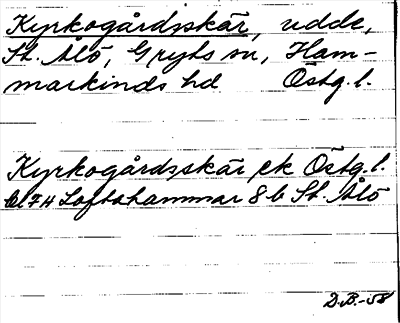 Kyrkogårdsskär, udde,
St. Ålö, Gryts sn, Ham-
markinds hd Östg. l.
Kyrkogårdsskär ek Östg. l.
bl 7H Loftahammar 8b St. Ålö
D.B.-58